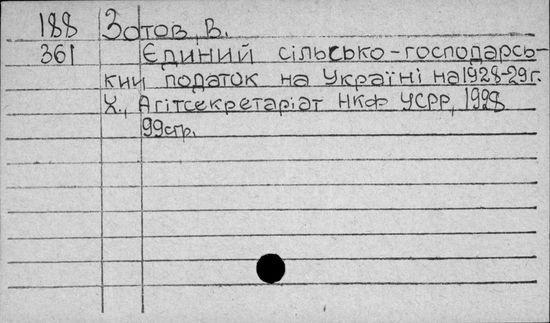 188 Зотов, В.
361 Єдиний сільсько-господарсь-
кий податок на Україні на 1928-29 г.
Х., Агітсекретаріат НКФ УСРР, 1928
99 стр.